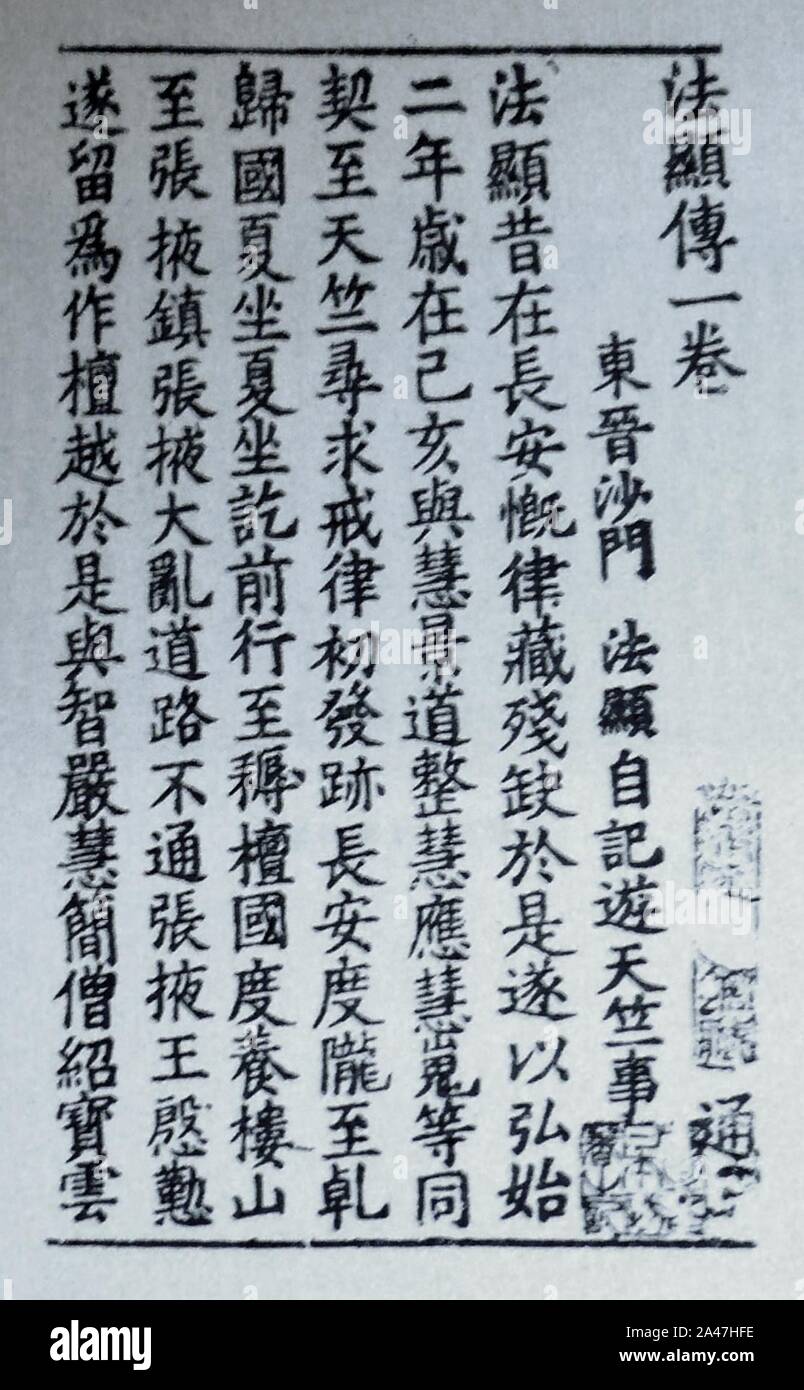 法顯傳一卷 通
東晉沙門 法顯自記遊天竺事
法顯昔在長安慨律藏殘缺於是遂以弘始
二年歲在己亥與慧景道整慧應慧嵬等同
契至天竺尋求戒律初發跡長安度隴至乹
歸國夏坐夏坐訖前行至耨檀國度養樓山
至張掖鎮張掖大亂道路不通張掖王慇懃
遂留爲作檀越於是與智嚴慧簡僧紹寶雲
alamy
Image ID: 2A47HFE
www.alamy.com